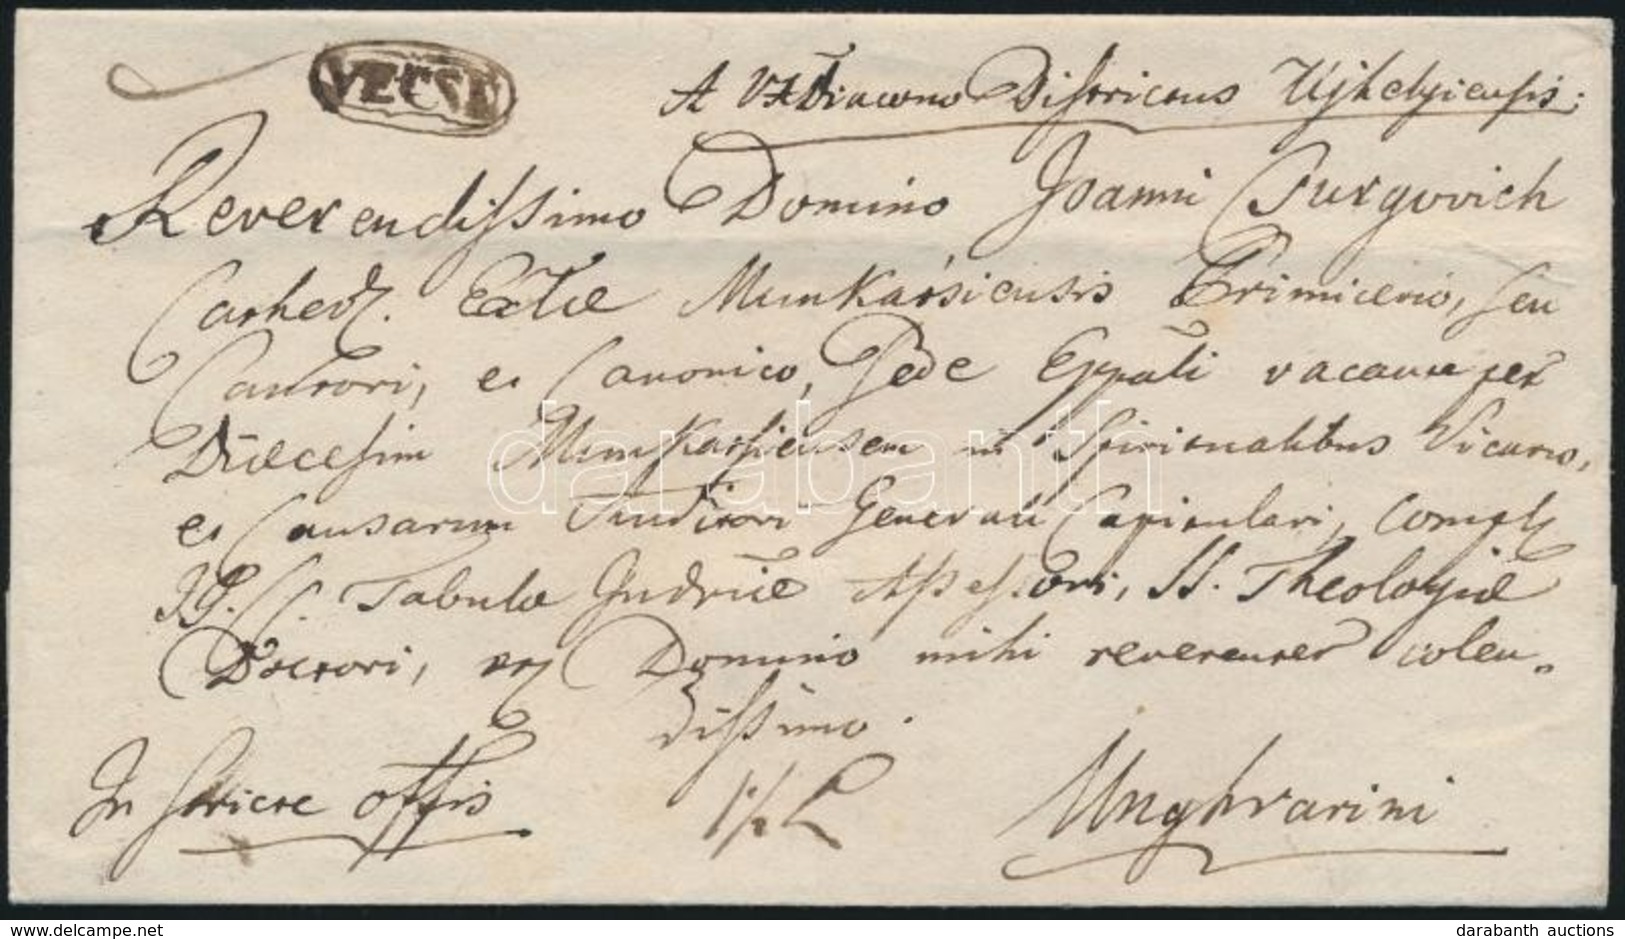 VÉCSE
A V. A. Diacono Districtus Ujhelyiensis:
Reverendissimo Domino Joanni Curgovich
Cathed. Ectae Munkátsiensis Primicerio, seu
Cantori, et Canonico, Sede Eppali vacante per
Dioecesim Munkatsiensem in Spiritualibus Vicario,
et Causarum Auditori Generali Capitulari, Compl.
Tabulae Judriae Assessori, SS. Theologiae
Doctori, Domino mihi reverenter colen-
dissimo.
In Stricte offis
Unghvarini
darabanth
delcampe.net
darabanth auctions